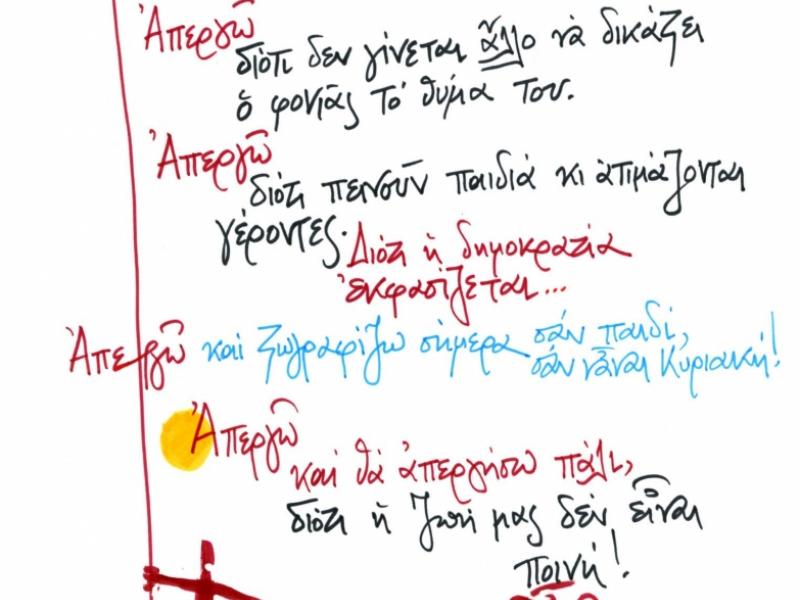 Ἀπεργῶ
διότι δεν γίνεται ἄλλο νὰ δικάζει
ὁ φονιᾶς τὸ θύμα του.
Ἀπεργῶ
διότι πεινοῦν παιδιὰ κι ἀτιμάζονται
γέροντες. Διότι ἡ δημοκρατία
ἐκφασίζεται...
Ἀπεργῶ καὶ ζωγραφίζω σήμερα σάν παιδί,
σάν νἆναι Κυριακή!
Ἀπεργῶ
καὶ θὰ ἀπεργήσω πάλι,
διότι ἡ ζωή μας δέν εἶναι
ποινή!